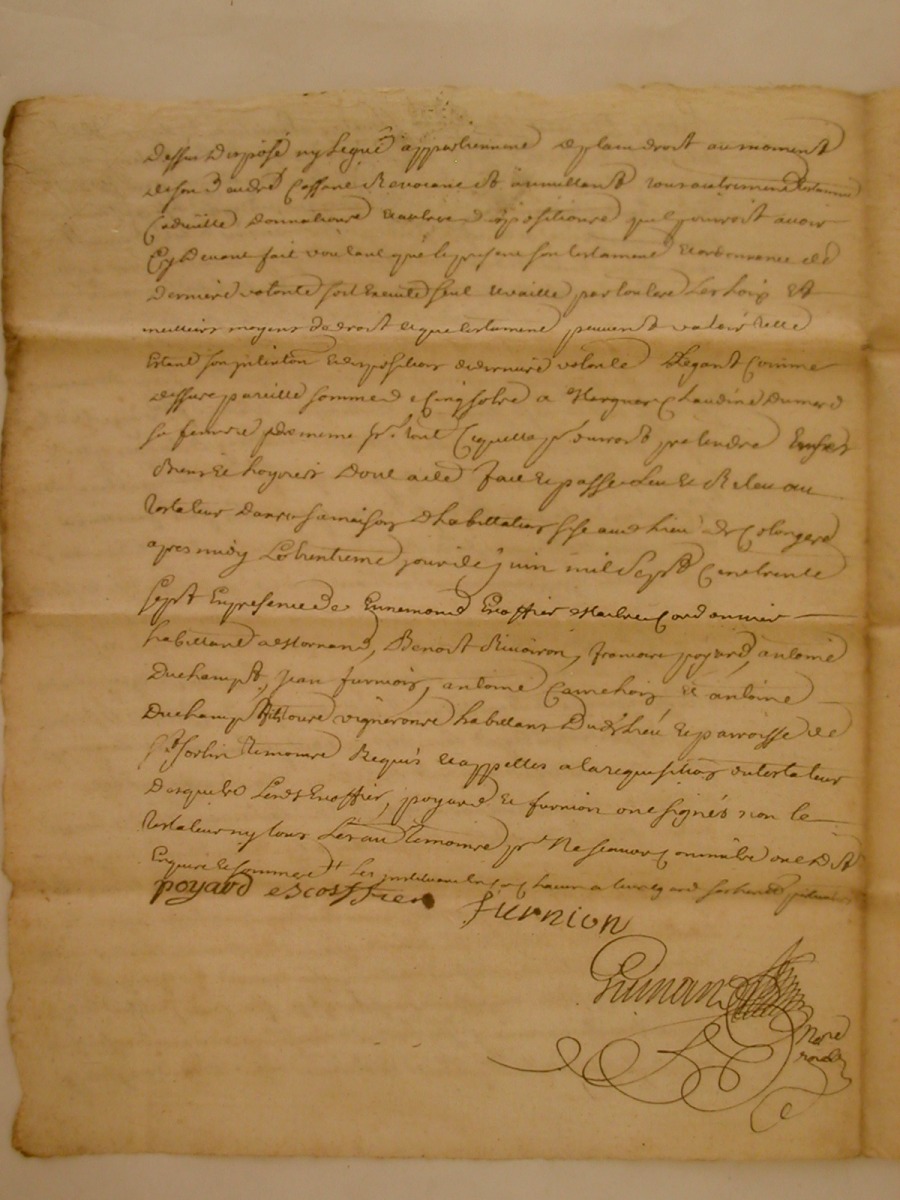 dessus disposé ny legué appartienne de plain droit au moment
de son decedz Cassant Revocant et annullant tous autres testamens
Codicille donnations et autres dispositions quil pourroit avoir
Cy devant fait voulant que le present son testament et ordonnance de
derniere volonté soit Executé seul et vaille par toutes Les Loix et
meilleurs moyens de droit et que testament peuvent valoir telle
Estant son intention et disposition de derniere volonté Legant Comme
dessus pareille somme de Cinq sols a Claudine Dumard
sa femme tout Ce quelle pourroit pretendre En ses
Biens et hoyries Dont acte fait et passé Leu et Releu au
testateur dans sa maison d'habittation sise aud Lieu de Colonges
apres midy Le trentieme jour de juin mil Sept Cent trente
Sept En presence de Ennemond Escoffier Maitre Cordonnier
habittant a Mornand, Benoist Rivoiron, francois poyard, antoine
Duchampt, jean furnion, antoine et antoine
Duchampt tous vignerons habittans Dud Lieu et parroisse de
St Sorlin temoins Requis et appelles a la requisition du testateur
Desquels Lesd Escoffier, poyard et furnion ont signés non le
testateur ny tous Les autres temoins pr ne scavoir Comme ils ont dit
Enquis et sommés Les
poyard escoffier furnion